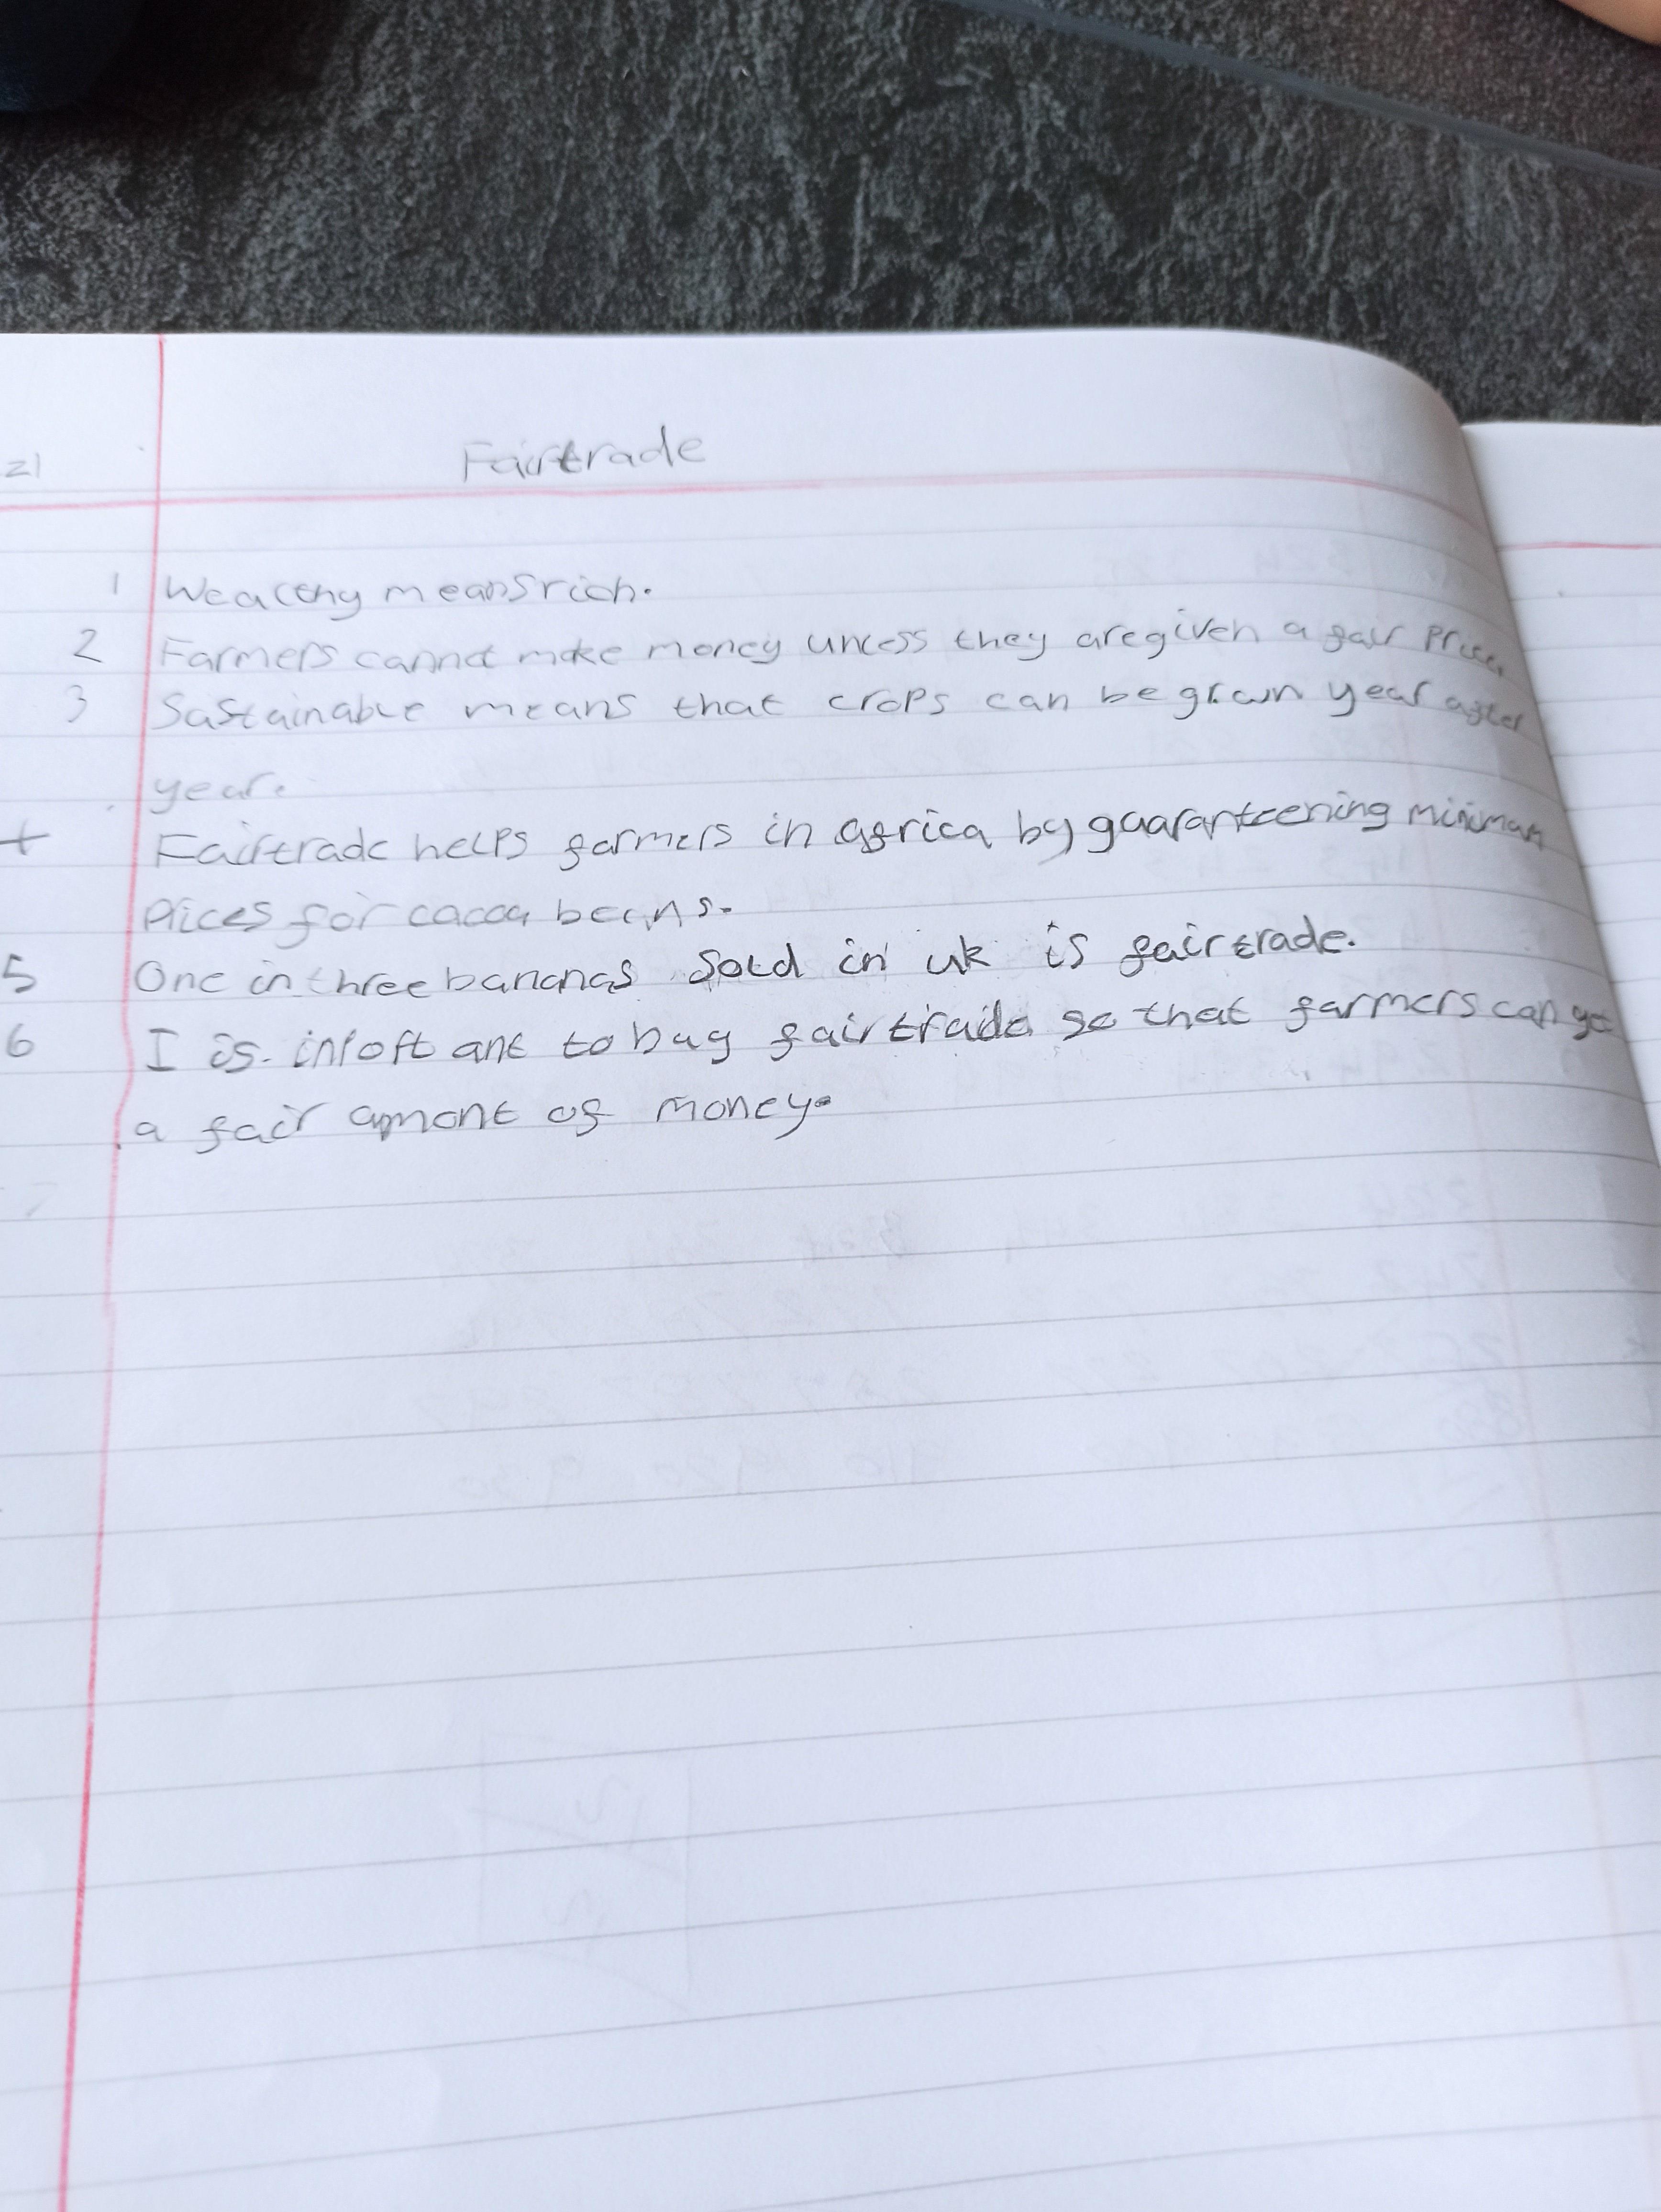 21 Fairtrade
1 Wealthy means rich.
2 Farmers cannot make money unless they are given a fair price.
3 Sastainable means that crops can be grown year after
year.
Fairtrade helps farmers in africa by guaranteening minimum
prices for cacoa beans.
5 One in three bananas sold in uk is fairtrade.
6 I is. important to buy fairtrade so that farmers can get
a fair amont of money.
7